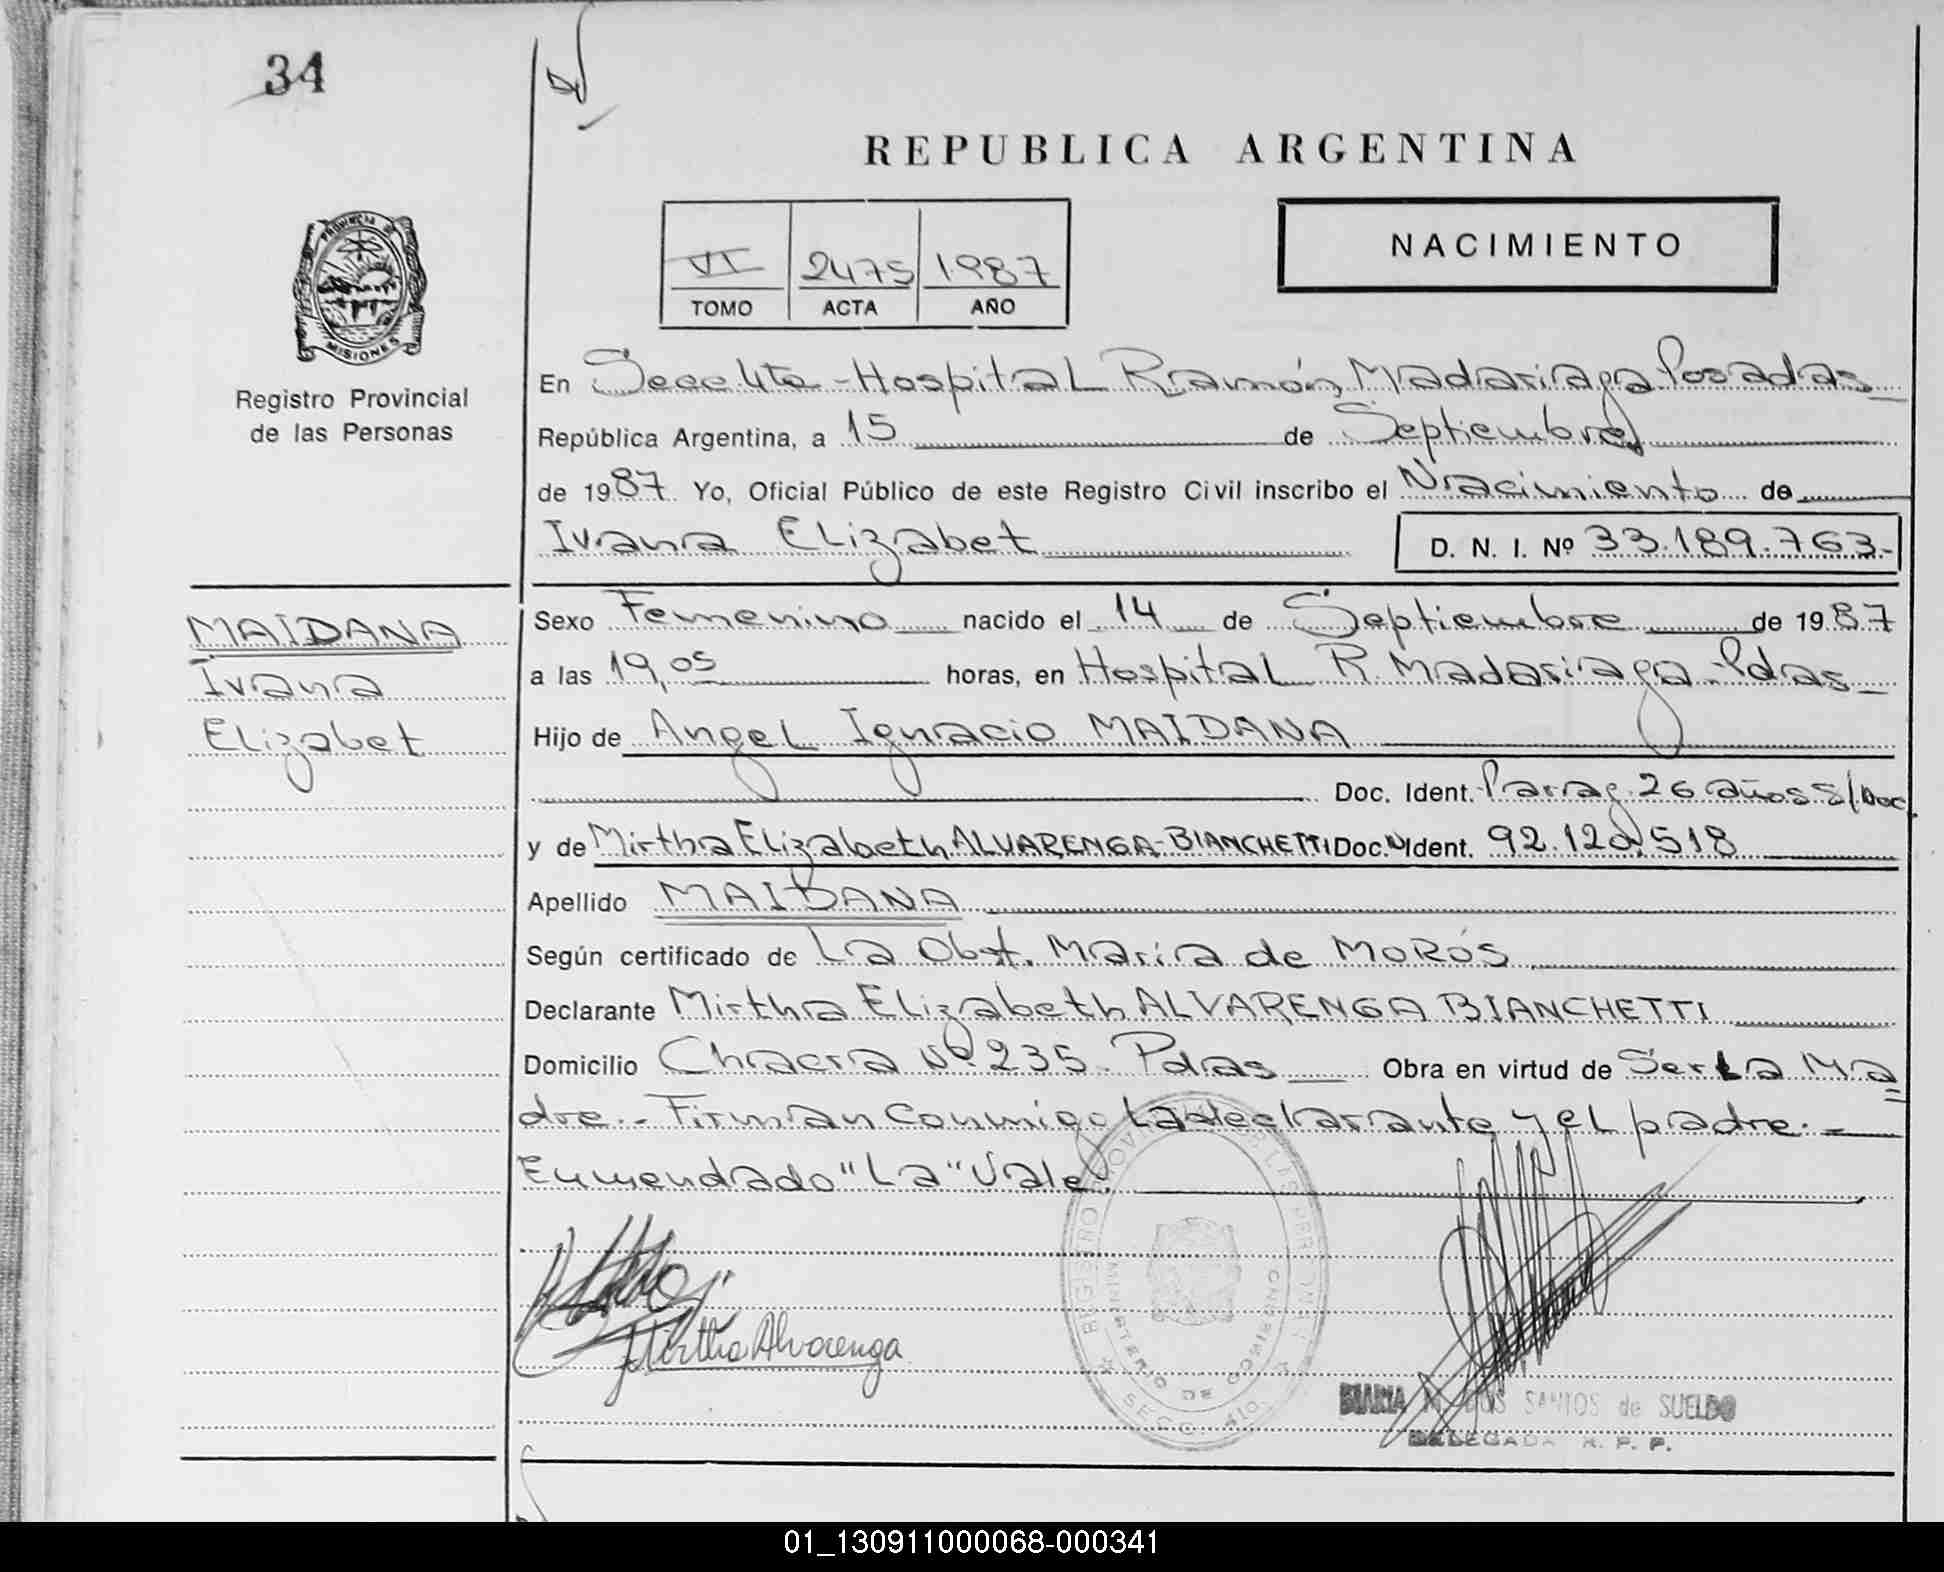 34
REPUBLICA ARGENTINA
NACIMIENTO
VI 2475 1987
TOMO ACTA AÑO
PROVINCIA DE
MISIONES
Registro Provincial
de las Personas
En Secc 4ta - Hospital Ramón Madariaga Posadas
República Argentina, a 15 de Septiembre
de 1987 Yo, Oficial Público de este Registro Civil inscribo el Nacimiento de
Ivana Elizabet D. N. I. Nº 33.189.763.-
MAIDANA
Ivana
Elizabet
Sexo Femenino nacido el 14 de Septiembre de 1987
a las 19,05 horas, en Hospital R. Madariaga - Pdas
Hijo de Angel Ignacio MAIDANA
Doc. Ident. Parag. 26 años S/Doc
y de Mirtha Elizabeth ALVARENGA-BIANCHETTI Doc. Ident. 92.120.518
Apellido MAIDANA
Según certificado de La Obst. María de MORÓS
Declarante Mirtha Elizabeth ALVARENGA BIANCHETTI
Domicilio Chacra Nº 235. Pdas Obra en virtud de Ser La Ma
dre.- Firman conmigo La declarante y el padre.-
Enmendado "La" Vale.
Mirtha Alvarenga
REGISTRO PROVINCIAL DE LAS PERSONAS
MINISTERIO DE GOBIERNO
SECC.
MARIA DOS SANTOS de SUELDO
DELEGADA R. P. P.
01_130911000068-000341